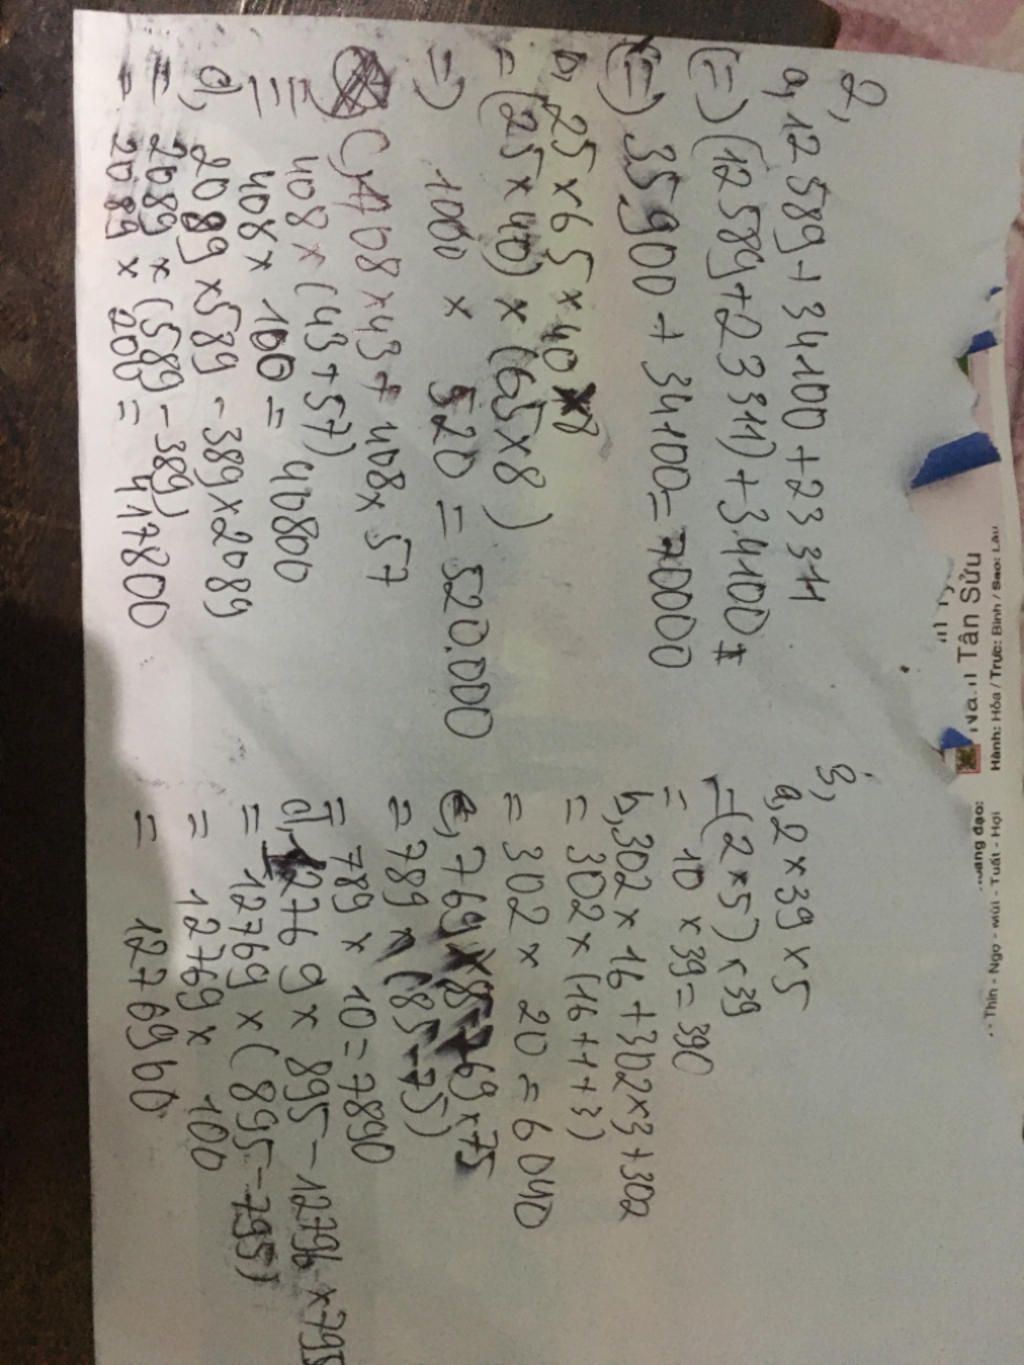 2,
a, 12 589 + 34100 + 23 311
(=) (12 589 + 2 3311) + 34100
(=) 35900 + 34100 = 70000
b, 25 × 65 × 40 × 8
= (25 × 40) × (65 × 8)
=) 1000 × 520 = 520.000
C, 408 × 43 + 408 × 57
= 408 × (43 + 57)
= 408 × 100 = 40800
d, 2089 × 589 - 389 × 2089
= 2089 × (589 - 389)
= 2089 × 200 = 417800
3,
a, 2 × 39 × 5
= (2 × 5) × 39
= 10 × 39 = 390
b, 302 × 16 + 302 × 3 + 302
= 302 × (16 + 1 + 3)
= 302 × 20 = 6040
c, 769 × 8 769 × 75
= 789 × (85 - 75)
= 789 × 10 = 7890
d, 1276 9 × 895 - 12796 × 795
= 12769 × (895 - 795)
= 12769 × 100
= 1276900
Tân Sửu
Hành: Hỏa / Trực: Bình / Sao: Lâu
Thìn - Ngọ - Mùi - Tuất - Hợi